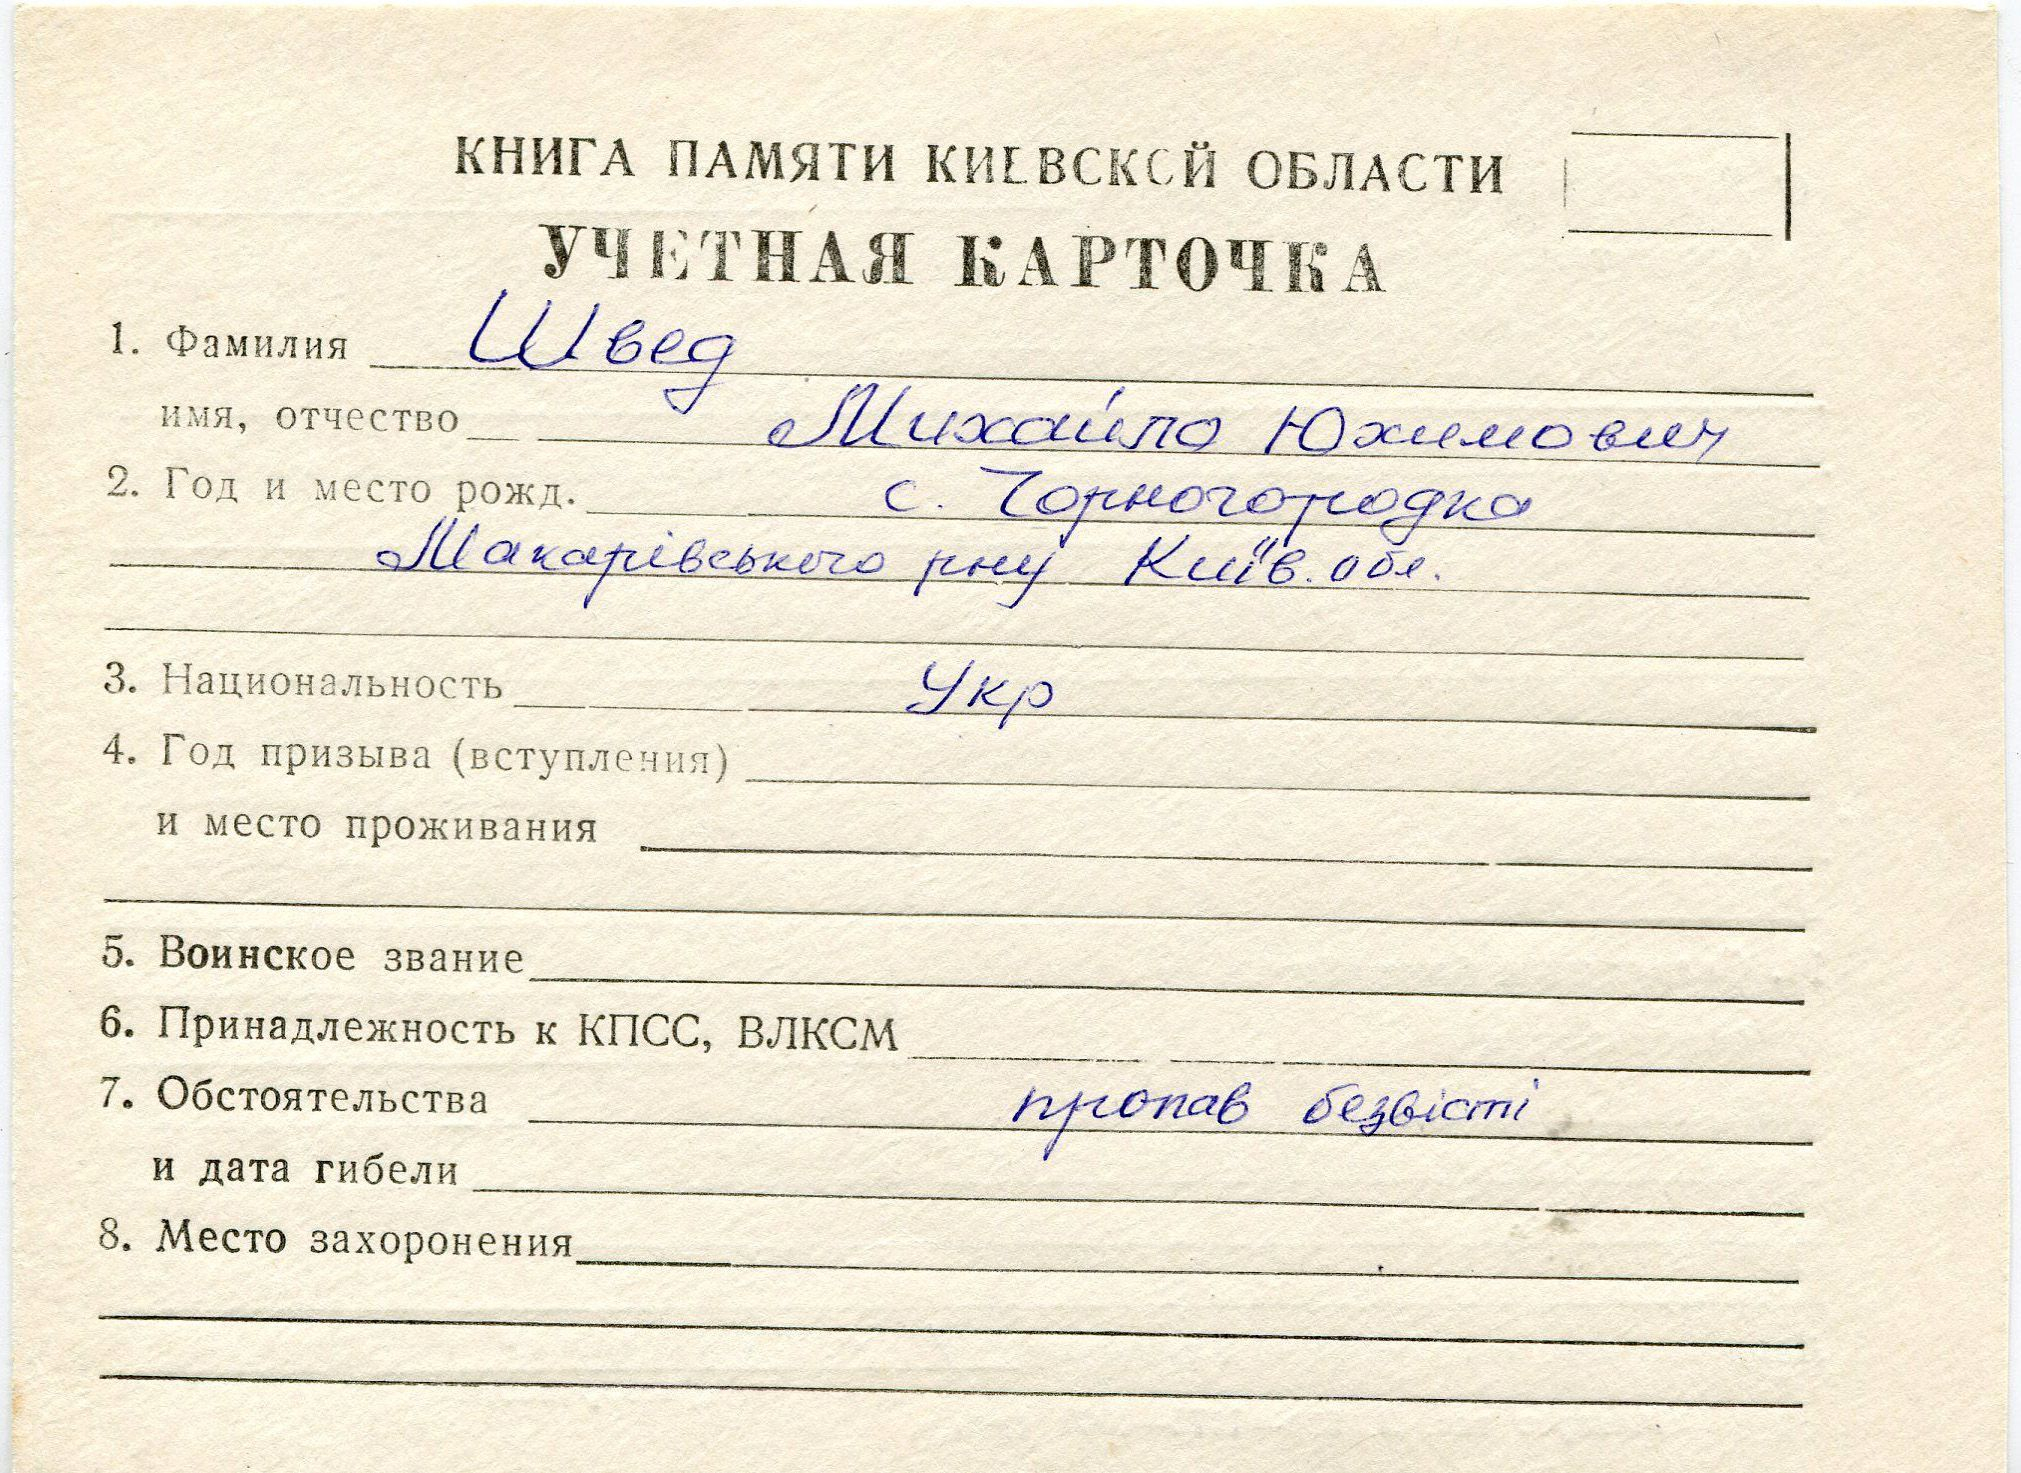 КНИГА ПАМЯТИ КИЕВСКОЙ ОБЛАСТИ
УЧЕТНАЯ КАРТОЧКА
1. Фамилия Швед
имя, отчество Михайло Юхимович
2. Год и место рожд. с. Чорногородка
Макарівського рну Київ. обл.
3. Национальность Укр
4. Год призыва (вступления)
и место проживания
5. Воинское звание
6. Принадлежность к КПСС, ВЛКСМ
7. Обстоятельства пропав безвісті
и дата гибели
8. Место захоронения